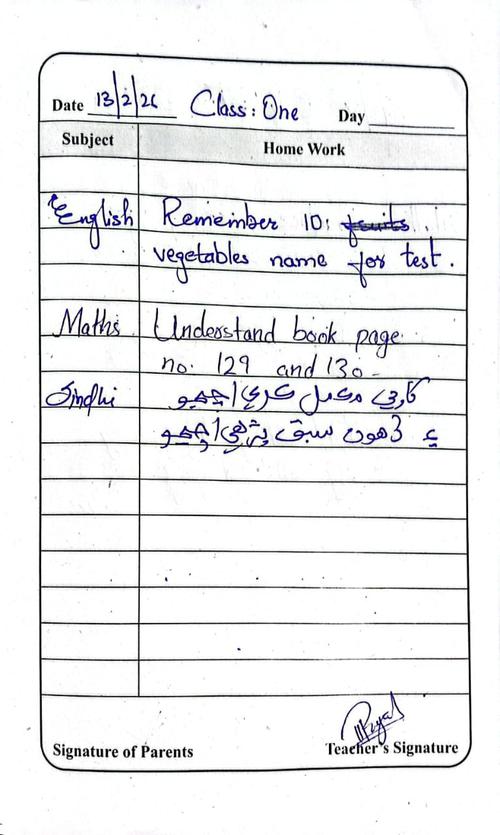 Date 13/2/26 Class: One Day
Subject Home Work
English Remember 10: fruits
vegetables name for test.
Maths Understand book page
no. 129 and 130-
Sindhi ڪاپي مڪمل ڪري اچجو
۽ 3 هون سبق پڙهي اچجو
Signature of Parents Teacher's Signature